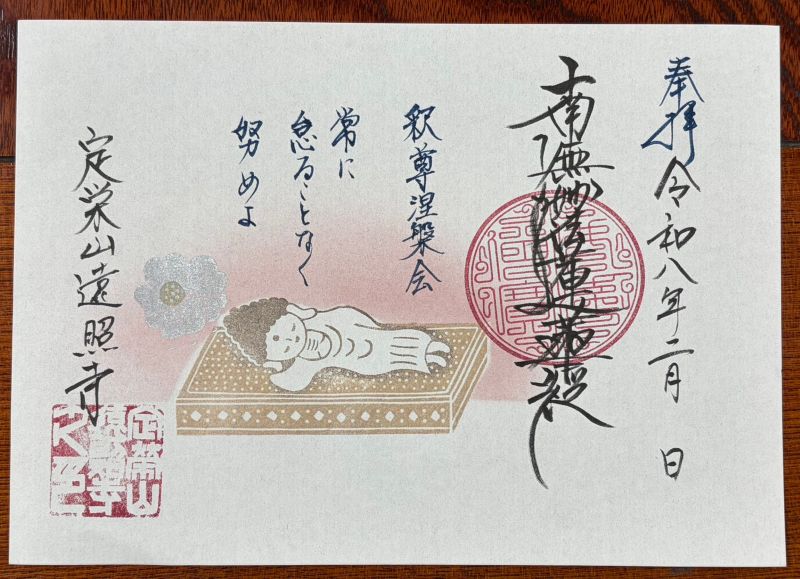 奉拝
令和八年二月 日
南無妙法蓮華経
釈尊涅槃会
常に
怠ることなく
努めよ
定栄山遠照寺